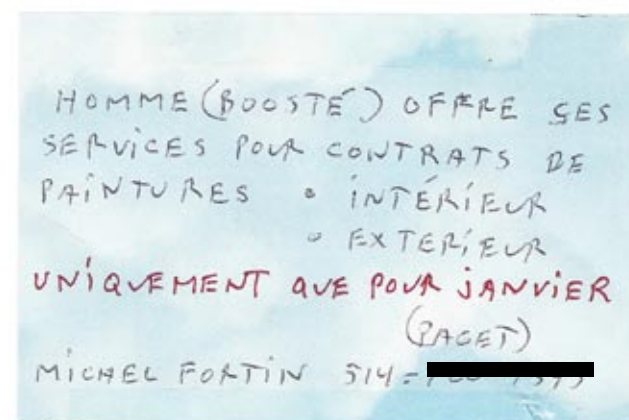 HOMME (BOOSTÉ) OFFRE SES
SERVICES POUR CONTRATS DE
PAINTURES • INTÉRIEUR
• EXTERIEUR
UNIQUEMENT QUE POUR JANVIER
(PAGET)
MICHEL FORTIN 514-